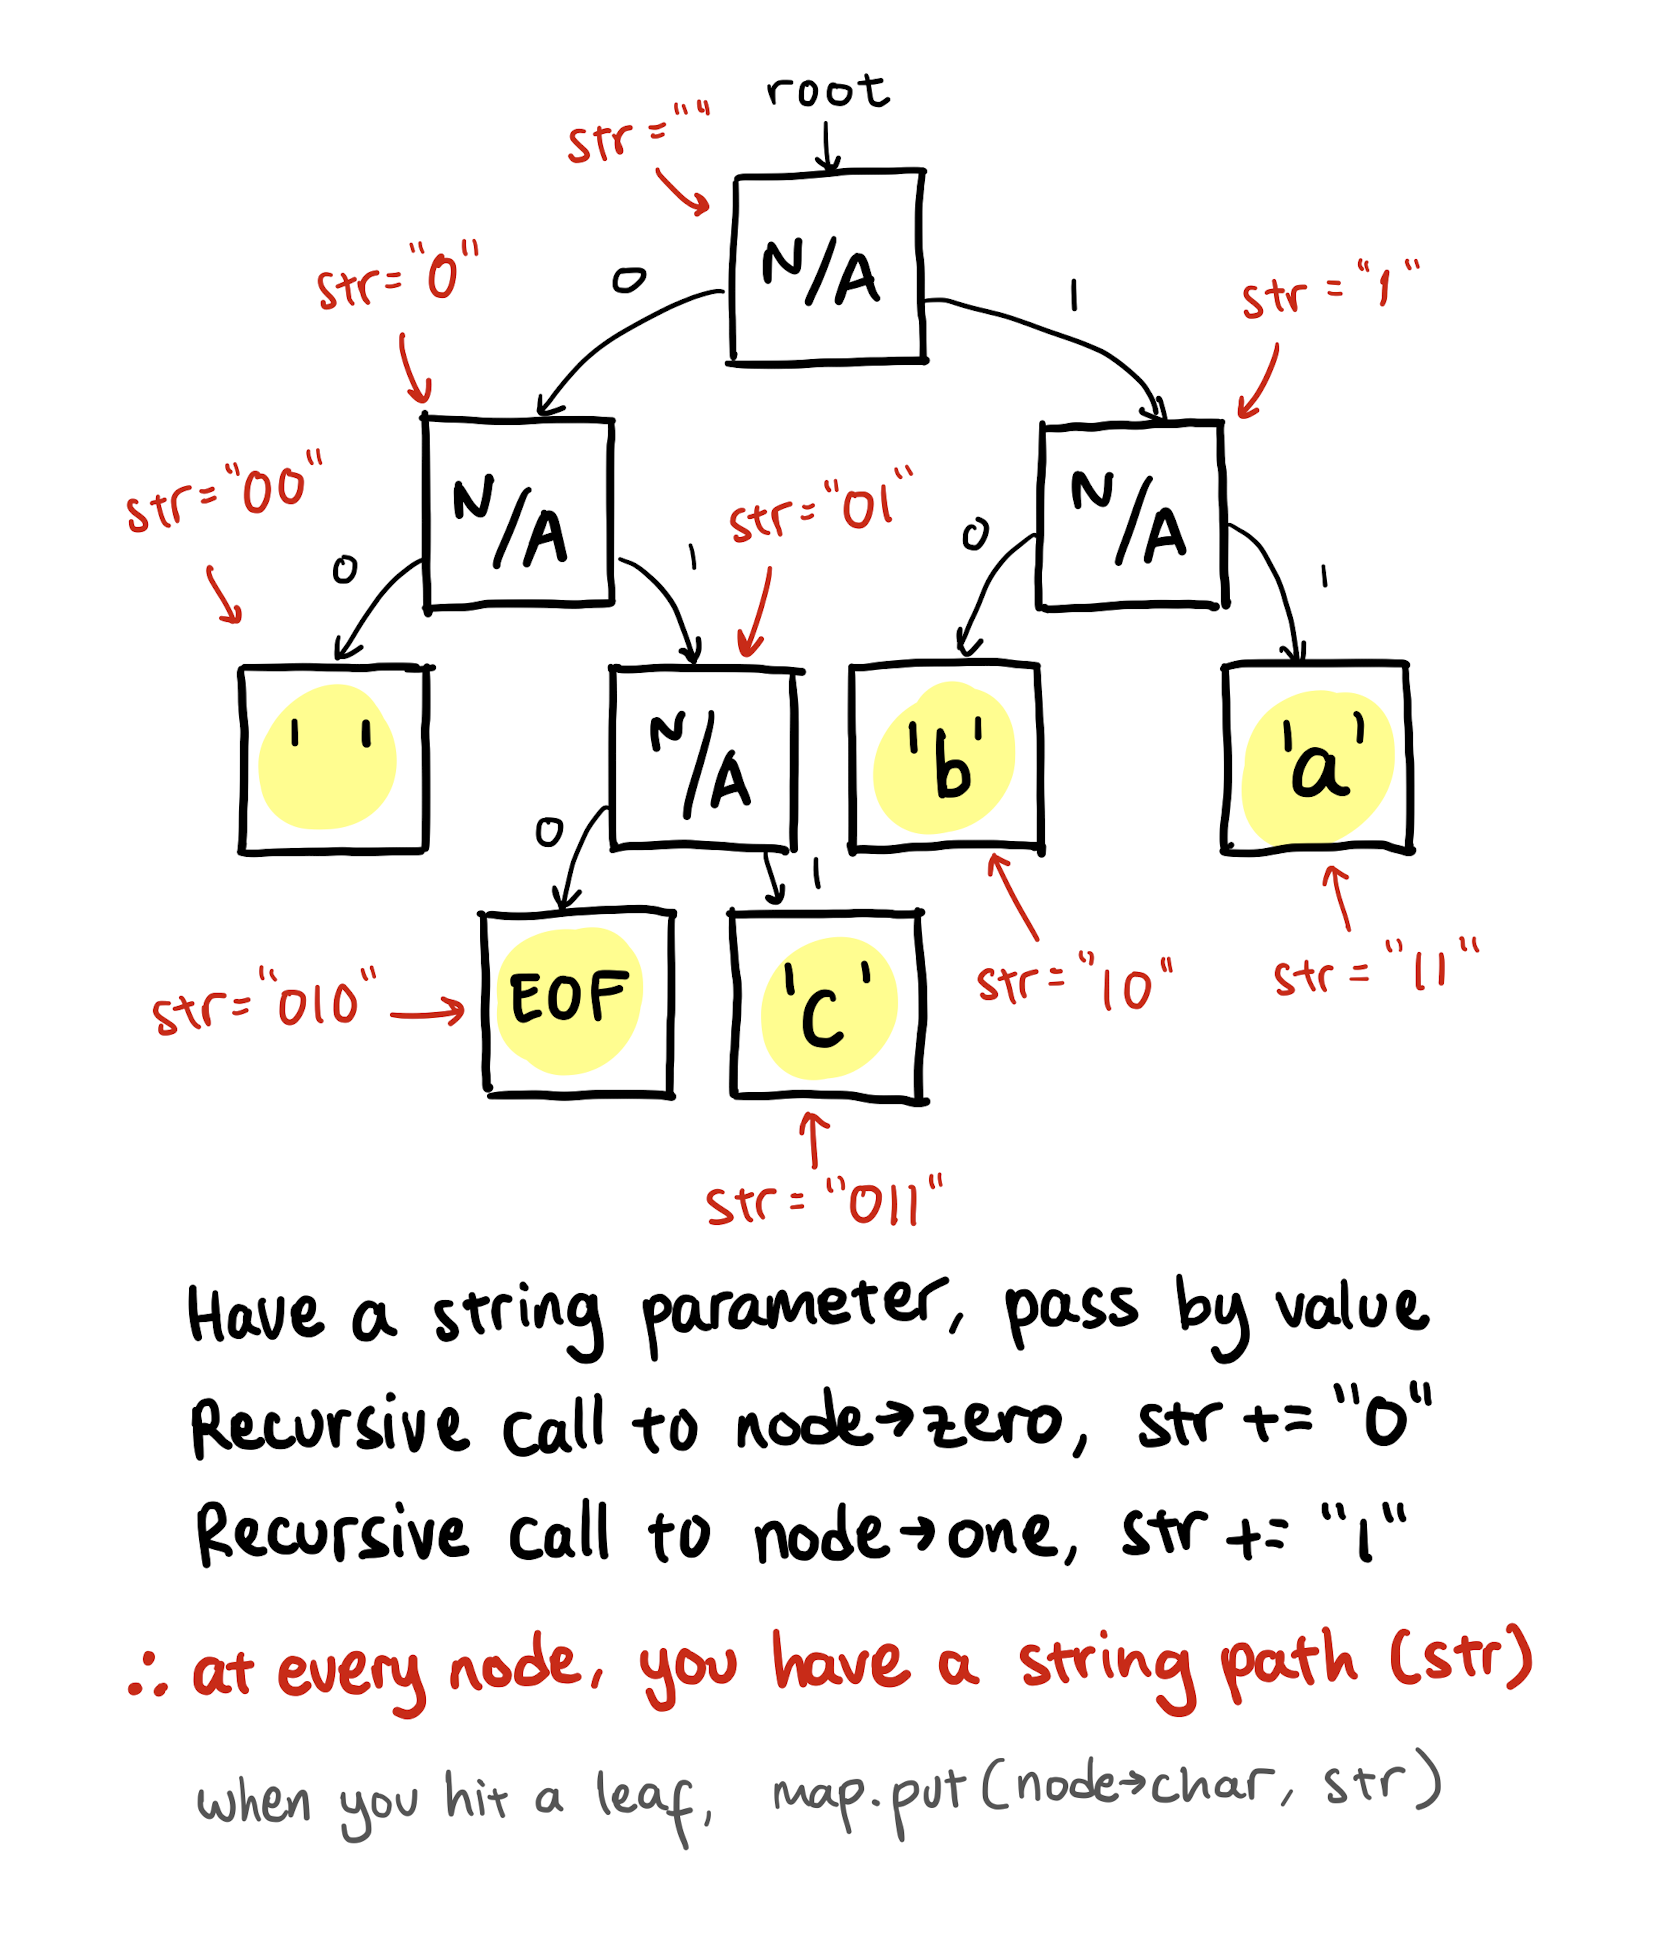 root
str=""
N/A
str="0"
0
1
str="1"
N/A
N/A
str="00"
0
1
str="01"
0
1
' '
N/A
'b'
'a'
0
1
str="010"
EOF
'c'
str="10"
str="11"
str="011"
Have a string parameter, pass by value
Recursive call to node→zero, str += "0"
Recursive call to node→one, str += "1"
∴ at every node, you have a string path (str)
when you hit a leaf, map.put(node→char, str)